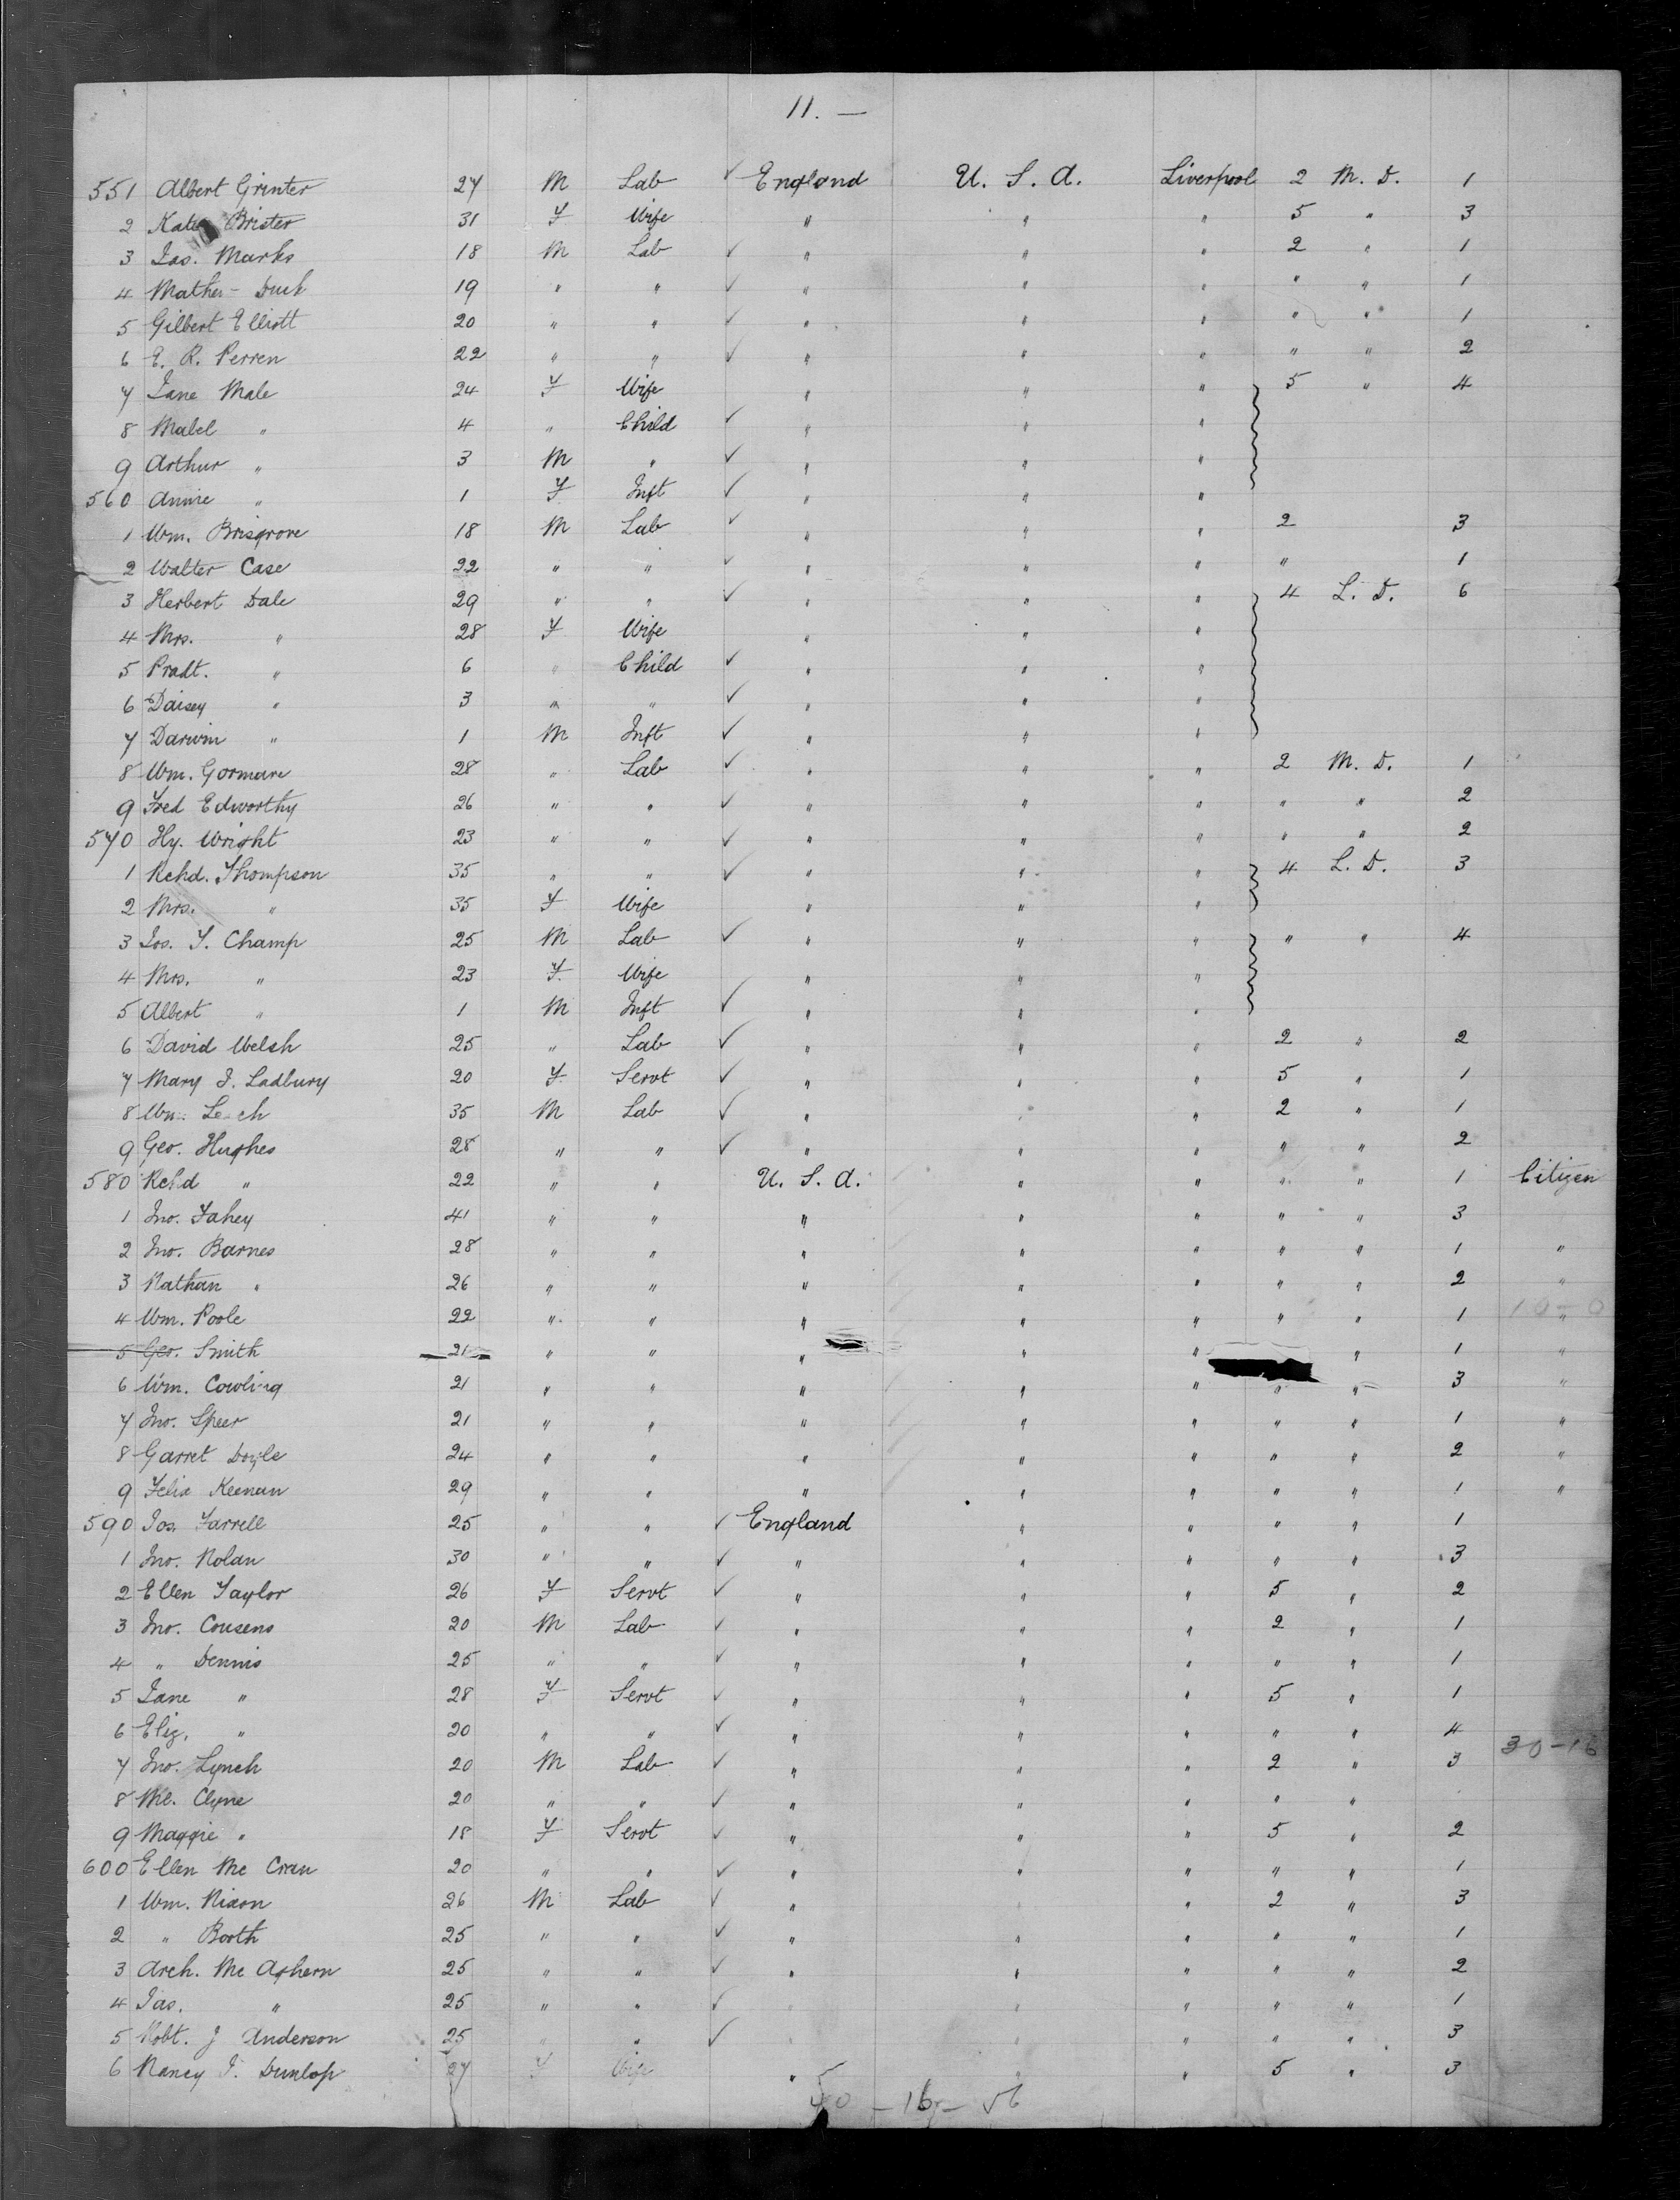 11. —
551 Albert Grinter 27 M Lab ✓ England U. S. A. Liverpool 2 M. D. 1
2 Kate Brister 31 F Wife " " " 5 " 3
3 Jas. Marks 18 M Lab ✓ " " " 2 " 1
4 Mather Duck 19 " " ✓ " " " " " 1
5 Gilbert Elliott 20 " " ✓ " " " " " 1
6 E. R. Perren 22 " " ✓ " " " " " 2
7 Jane Male 24 F Wife " " " 5 " 4
8 Mabel " 4 " Child ✓ " " "
9 Arthur " 3 M " ✓ " " "
560 Annie " 1 F Inft ✓ " " "
1 Wm. Brisgrove 18 M Lab ✓ " " " 2 3
2 Walter Case 22 " " ✓ " " " " 1
3 Herbert Dale 29 " " ✓ " " " 4 L. D. 6
4 Mrs. " 28 F Wife " " "
5 Pradt. " 6 " Child ✓ " " "
6 Daisey " 3 " " ✓ " " "
7 Darwin " 1 M Inft ✓ " " "
8 Wm. Gormare 28 " Lab ✓ " " " 2 M. D. 1
9 Fred Edworthy 26 " " ✓ " " " " " 2
570 Hy. Wright 23 " " ✓ " " " " " 2
1 Rchd. Thompson 35 " " ✓ " " " 4 L. D. 3
2 Mrs. " 35 F Wife " " "
3 Jos. T. Champ 25 M Lab ✓ " " " " " 4
4 Mrs. " 23 F Wife " " "
5 Albert " 1 M Inft ✓ " " "
6 David Welsh 25 " Lab ✓ " " " 2 " 2
7 Mary J. Ladbury 20 F Servt ✓ " " " 5 " 1
8 Wm. 35 M Lab ✓ " " " 2 " 1
9 Geo. Hughes 28 " " ✓ " " " " " 2
580 Rchd " 22 " " U. S. A. " " " " 1 Citizen
1 Jno. Fahey 41 " " " " " " " 3
2 Jno. Barnes 28 " " " " " " " 1 "
3 Nathan " 26 " " " " " " " 2 "
4 Wm. Poole 22 " " " " " " " 1 " 10-0
5 Geo. Smith 21 " " " " " " 1 "
6 Wm. Cowling 21 " " " " " " " 3 "
7 Jno. Speer 21 " " " " " " " 1 "
8 Garret Doyle 24 " " " " " " " 2 "
9 Felix Keenan 29 " " " " " " " 1 "
590 Jos. Farrell 25 " " ✓ England " " " " 1
1 Jno. Nolan 30 " " ✓ " " " " " 3
2 Ellen Taylor 26 F Servt ✓ " " " 5 " 2
3 Jno. Cousens 20 M Lab ✓ " " " 2 " 1
4 " Dennis 25 " " ✓ " " " " " 1
5 Jane " 28 F Servt ✓ " " " 5 " 1
6 Eliz. " 20 " " ✓ " " " " " 4
7 Jno. Lynch 20 M Lab ✓ " " " 2 " 3 30-16
8 Ml. Clyne 20 " " ✓ " " " " "
9 Maggie " 18 F Servt ✓ " " " 5 " 2
600 Ellen Mc Cran 20 " " ✓ " " " " " 1
1 Wm. Nixon 26 M Lab ✓ " " " 2 " 3
2 " Booth 25 " " ✓ " " " " " 1
3 Arch. Mc Aghern 25 " " ✓ " " " " " 2
4 Jas. " 25 " " ✓ " " " " " 1
5 Robt. J Anderson 25 " " ✓ " " " " " 3
6 Nancy J. Dunlop 27 F Wife " " " 5 " 3
40 - 16 - 56